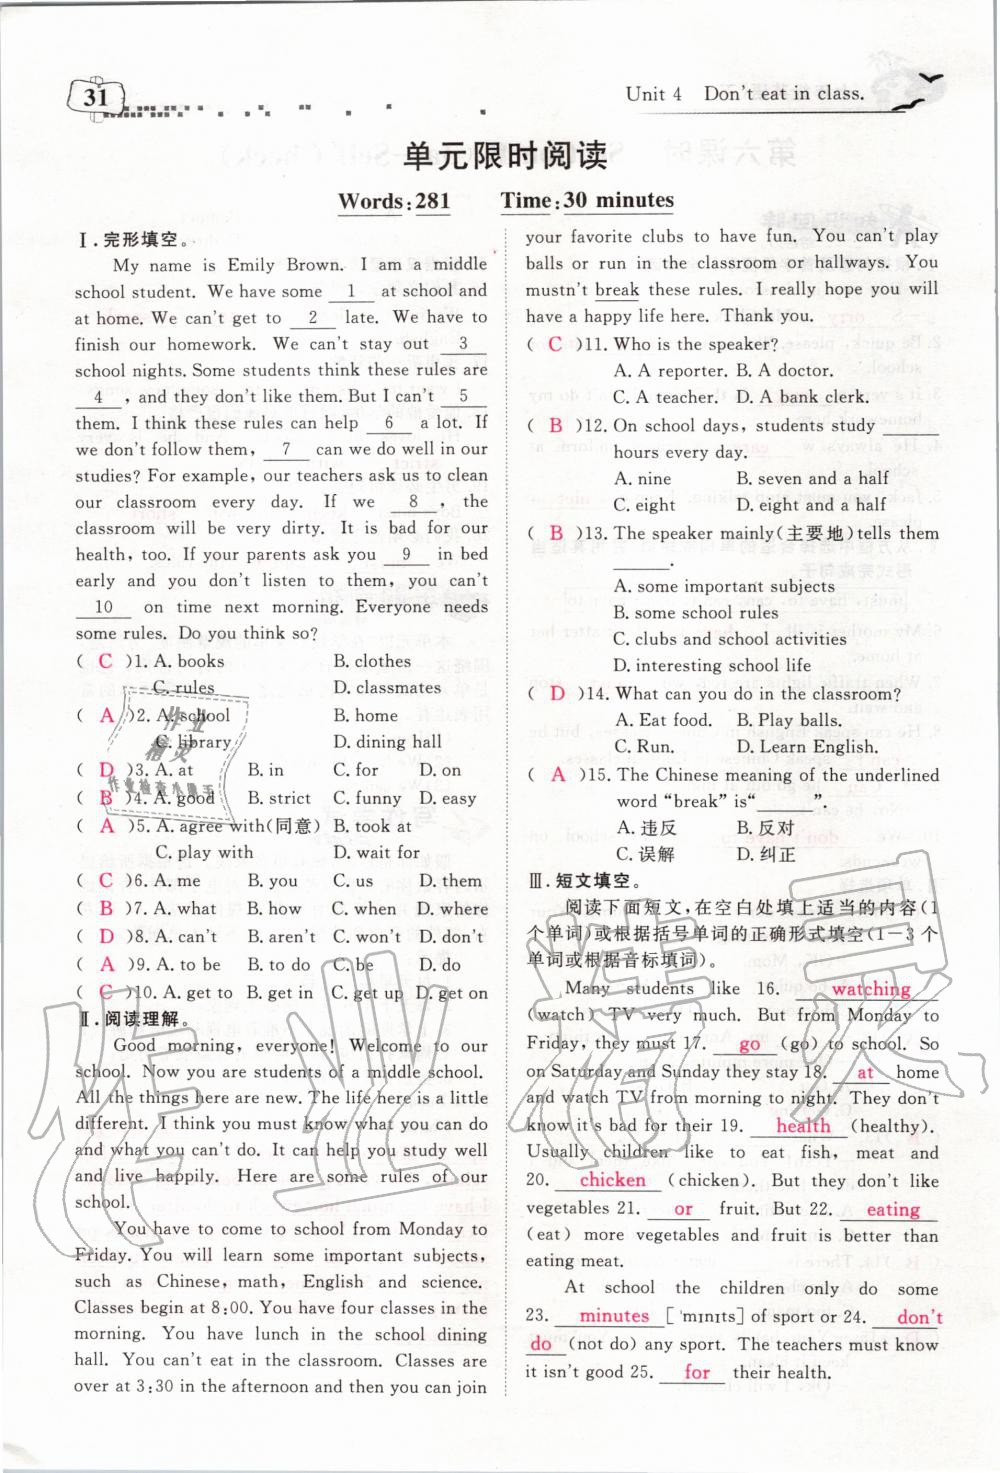 31
Unit 4 Don't eat in class.
单元限时阅读
Words:281 Time:30 minutes
Ⅰ.完形填空。
My name is Emily Brown. I am a middle
school student. We have some 1 at school and
at home. We can't get to 2 late. We have to
finish our homework. We can't stay out 3
school nights. Some students think these rules are
4 , and they don't like them. But I can't 5
them. I think these rules can help 6 a lot. If
we don't follow them, 7 can we do well in our
studies? For example, our teachers ask us to clean
our classroom every day. If we 8 , the
classroom will be very dirty. It is bad for our
health, too. If your parents ask you 9 in bed
early and you don't listen to them, you can't
10 on time next morning. Everyone needs
some rules. Do you think so?
( C )1. A. books B. clothes
C. rules D. classmates
( A )2. A. school B. home
C. library D. dining hall
( D )3. A. at B. in C. for D. on
( B )4. A. good B. strict C. funny D. easy
( A )5. A. agree with(同意) B. took at
C. play with D. wait for
( C )6. A. me B. you C. us D. them
( B )7. A. what B. how C. when D. where
( D )8. A. can't B. aren't C. won't D. don't
( A )9. A. to be B. to do C. be D. do
( C )10. A. get to B. get in C. get up D. get on
Ⅱ.阅读理解。
Good morning, everyone! Welcome to our
school. Now you are students of a middle school.
All the things here are new. The life here is a little
different. I think you must know what you can do
and what you can't do. It can help you study well
and live happily. Here are some rules of our
school.
You have to come to school from Monday to
Friday. You will learn some important subjects,
such as Chinese, math, English and science.
Classes begin at 8:00. You have four classes in the
morning. You have lunch in the school dining
hall. You can't eat in the classroom. Classes are
over at 3:30 in the afternoon and then you can join
your favorite clubs to have fun. You can't play
balls or run in the classroom or hallways. You
mustn't break these rules. I really hope you will
have a happy life here. Thank you.
( C )11. Who is the speaker?
A. A reporter. B. A doctor.
C. A teacher. D. A bank clerk.
( B )12. On school days, students study ______
hours every day.
A. nine B. seven and a half
C. eight D. eight and a half
( B )13. The speaker mainly(主要地)tells them
______.
A. some important subjects
B. some school rules
C. clubs and school activities
D. interesting school life
( D )14. What can you do in the classroom?
A. Eat food. B. Play balls.
C. Run. D. Learn English.
( A )15. The Chinese meaning of the underlined
word "break" is"______".
A. 违反 B. 反对
C. 误解 D. 纠正
Ⅲ.短文填空。
阅读下面短文,在空白处填上适当的内容(1
个单词)或根据括号单词的正确形式填空(1-3个
单词或根据音标填词)。
Many students like 16. watching
(watch) TV very much. But from Monday to
Friday, they must 17. go (go) to school. So
on Saturday and Sunday they stay 18. at home
and watch TV from morning to night. They don't
know it's bad for their 19. health (healthy).
Usually children like to eat fish, meat and
20. chicken (chicken). But they don't like
vegetables 21. or fruit. But 22. eating
(eat) more vegetables and fruit is better than
eating meat.
At school the children only do some
23. minutes ['mɪnɪts] of sport or 24. don't
do (not do) any sport. The teachers must know
it isn't good 25. for their health.
作业精灵
作业检查小助手
作业精灵